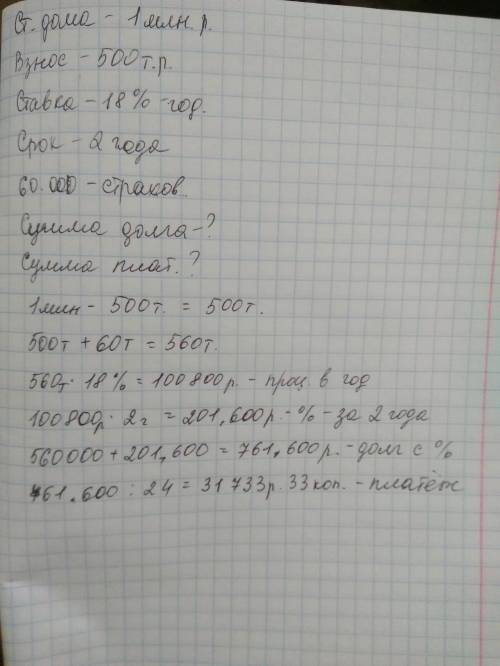 Ст. дома - 1 млн. р.
Взнос - 500 т.р.
Ставка - 18% - год.
Срок - 2 года
60.000 - страхов.
Сумма долга - ?
Сумма плат. ?
1 млн - 500т. = 500т.
500т + 60т = 560т.
560т · 18% = 100800р. - проц. в год
100800р · 2г = 201,600р. - % - за 2 года
560000 + 201,600 = 761,600р. - долг с %
761.600 : 24 = 31733р. 33коп. - платёж